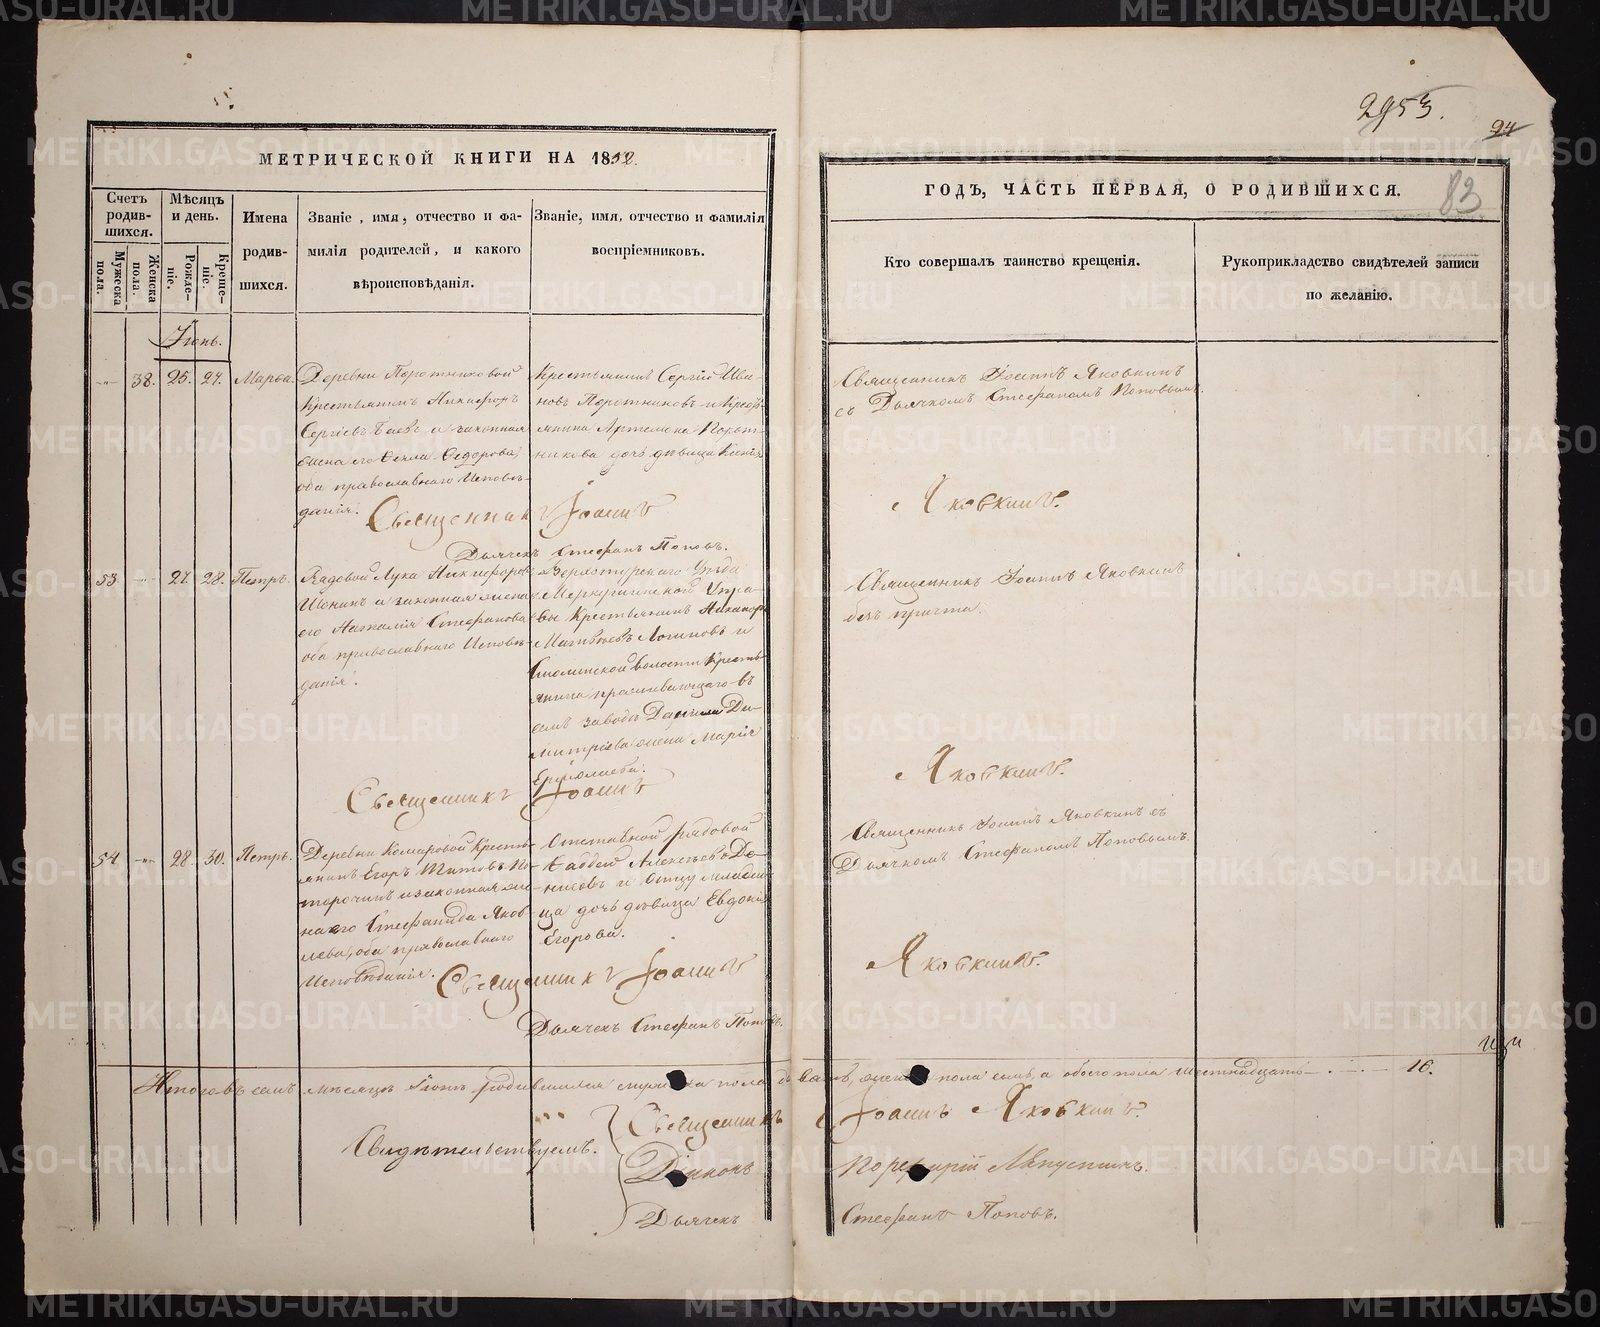 2953.
24
83
МЕТРИЧЕСКОЙ КНИГИ НА 1852.
ГОДЪ, ЧАСТЬ ПЕРВАЯ, О РОДИВШИХСЯ.
Счетъ родив-шихся.
Мужеска пола.
Женска пола.
Мѣсяцъ и день.
Рожде-ніе.
Креще-ніе.
Имена
родив-
шихся.
Званіе, имя, отчество и фа-
милія родителей, и какого
вѣроисповѣданія.
Званіе, имя, отчество и фамилія
воспріемниковъ.
Кто совершалъ таинство крещенія.
Рукоприкладство свидѣтелей записи
по желанію.
Іюнь.
38. 25. 27. Марѳа.
Деревни Поротниковой
Крестьянинъ Никифоръ
Сергіевъ и законная
жена его Ѳекла Ѳедорова
оба православнаго Исповѣ-
данія.
Крестьянинъ Сергій Ива-
новъ Поротниковъ и Кресть-
янина Артемона Порот-
никова дочь дѣвица
Священникъ Іоаннъ Яковкинъ
съ Дьячкомъ Стефаномъ Поповымъ.
Священникъ Іоаннъ
Яковкинъ.
Дьячекъ Стефанъ Поповъ.
53. 27. 28. Петръ.
Рядовой Лука Никифоровъ
и законная жена
его Наталія Стефанова
оба православнаго Исповѣ-
данія.
Верхотурскаго Уѣзда
Меркушинской Упра-
вы Крестьянинъ Никаноръ
Матвѣевъ Логиновъ и
волости Кресть-
янина проживающаго въ
семъ заводѣ Даніила Ди-
митріева жена Марія
Ермолаева.
Священникъ Іоаннъ Яковкинъ
безъ причта.
Священникъ Іоаннъ
Яковкинъ.
54. 28. 30. Петръ.
Деревни Комаровой Кресть-
янинъ Егоръ Титовъ По-
торочинъ и законная же-
на его Стефанида Яков-
лева, оба православнаго
Исповѣданія.
Отставной рядовой
Ѳаддей Алексѣевъ Де-
нисовъ и Отцу младен-
ца дочь дѣвица Евдокія
Егорова.
Священникъ Іоаннъ Яковкинъ съ
Дьячкомъ Стефаномъ Поповымъ.
Священникъ Іоаннъ
Яковкинъ.
Дьячекъ Стефанъ Поповъ.
Итого въ семъ мѣсяцѣ Іюнѣ родившихся мужеска пола девять, женска пола семь, а обоего пола шестнадцать 16.
Свидѣтельствуемъ.
Священникъ Іоаннъ Яковкинъ.
Діаконъ Порфирій Ляпустинъ.
Дьячекъ Стефанъ Поповъ.
METRIKI.GASO-URAL.RU